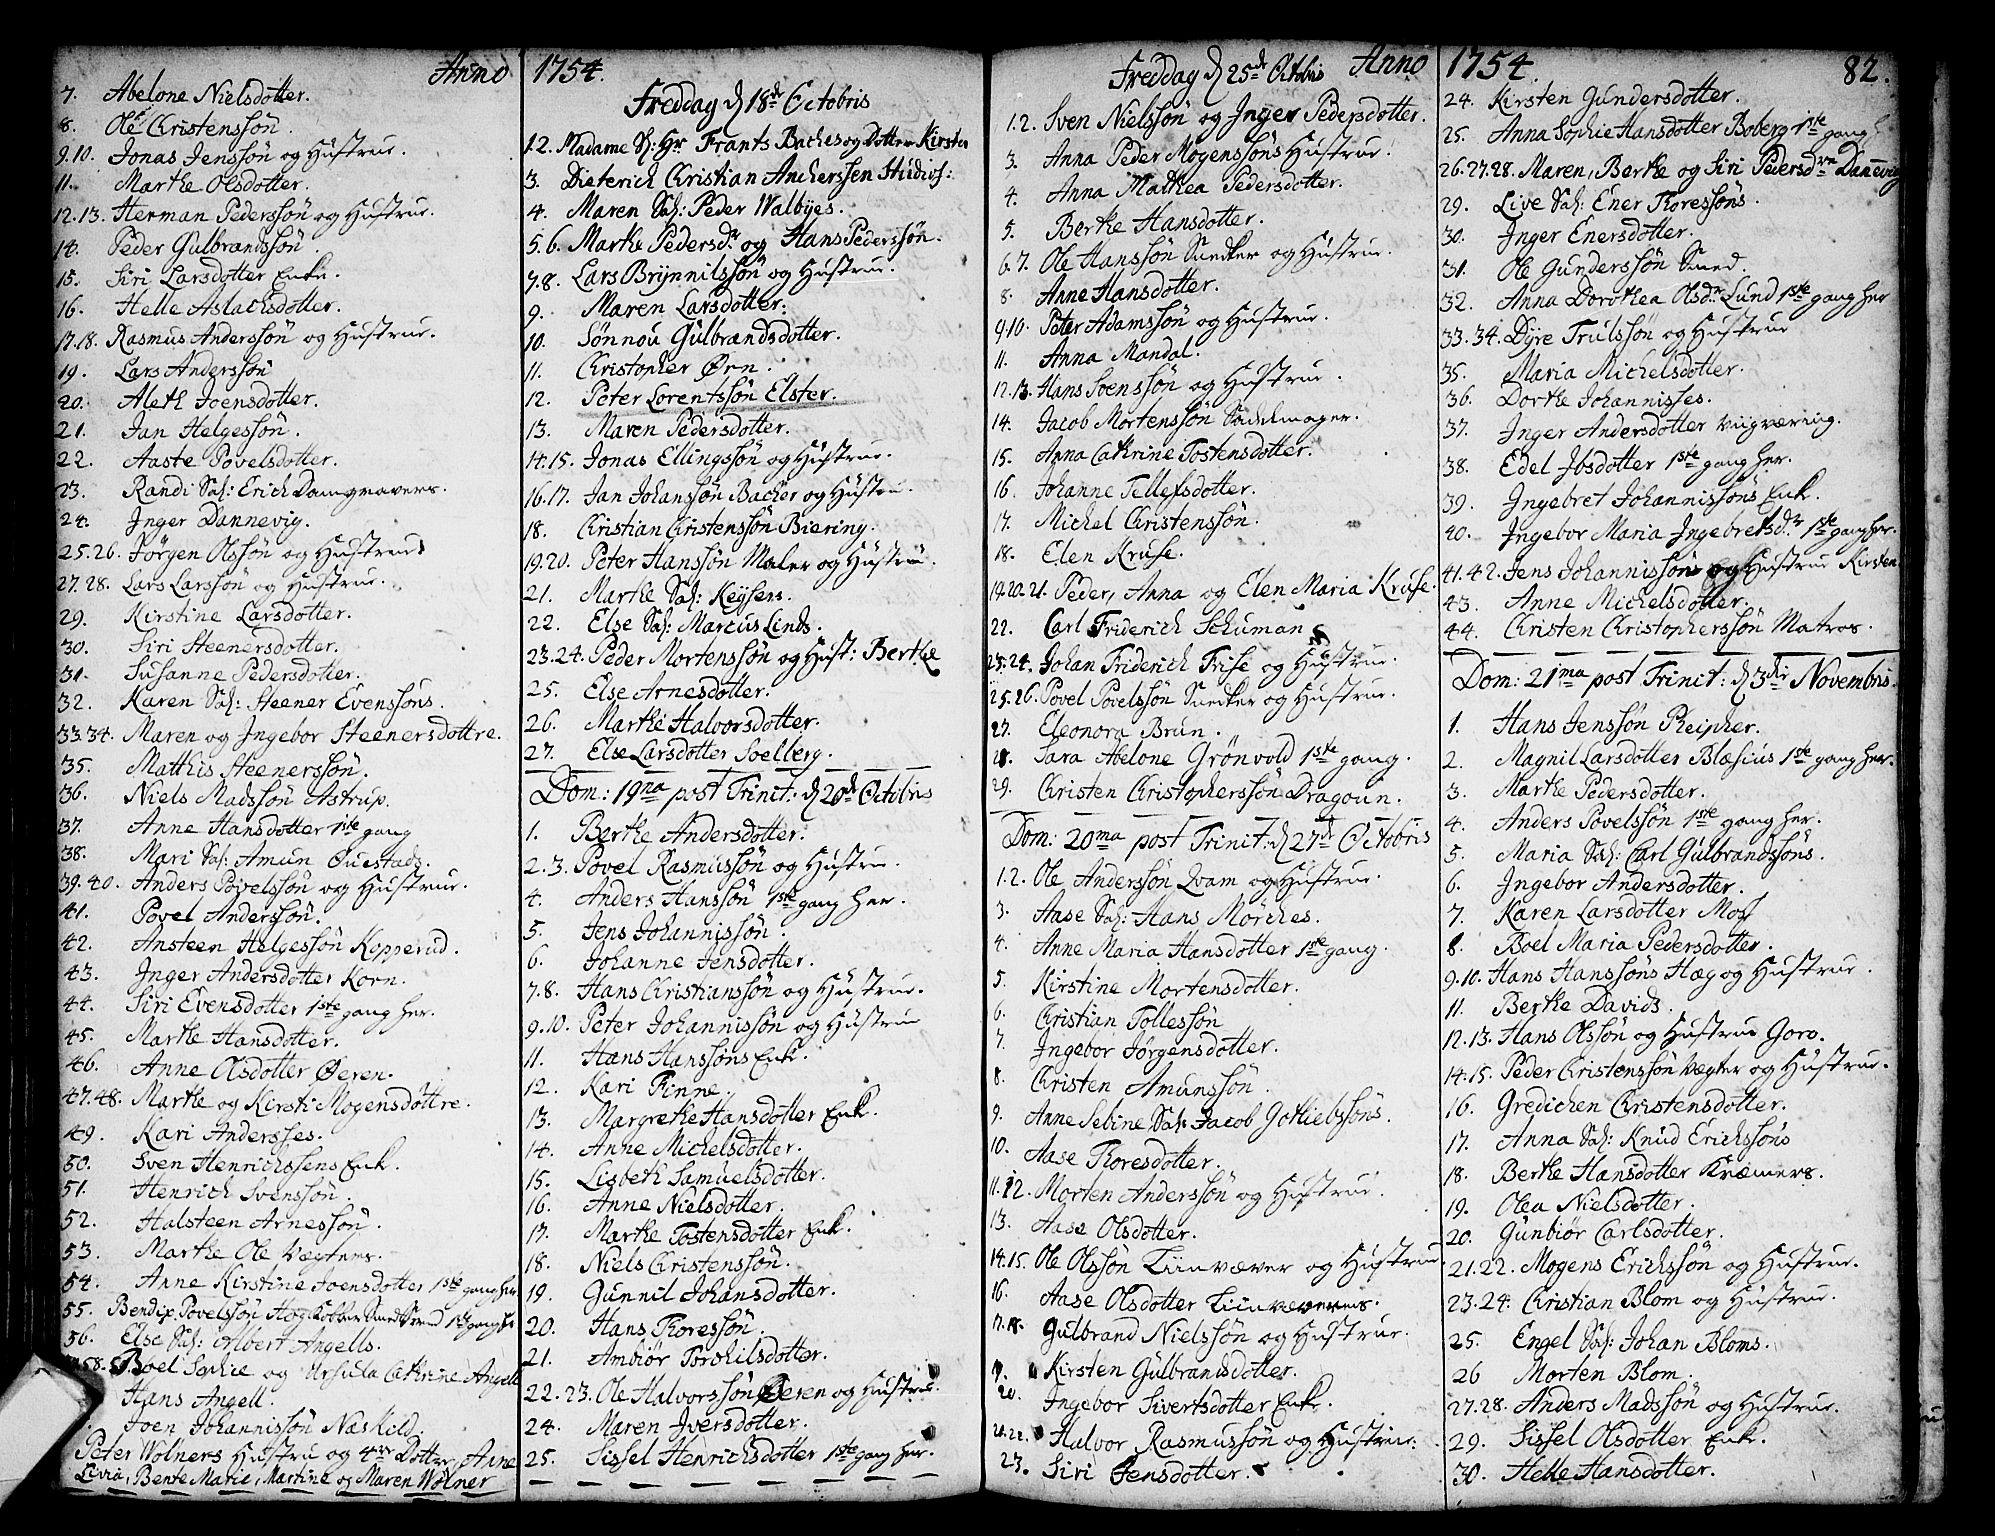 Anno
7. Abelone Nielsdotter.
8. Ole Christenssön.
9.10. Jonas Jenssön og Hustrue.
11. Marthe Olsdotter.
12.13. Herman Pederssön og Hustrue.
14. Peder Gulbrandssön.
15. Siri Larsdotter Enke.
16. Helle Aslachsdotter.
17.18. Rasmus Anderssön og Hustrue.
19. Lars Anderssön
20. Aleth Joensdotter.
21. Jan Helgessön.
22. Aaste Povelsdotter.
23. Randi Sal: Erich Damgravers.
24. Inger Dannevig.
25.26. Jörgen Olssön og Hustrue
27.28. Lars Larssön og Hustrue.
29. Kirstine Larsdotter.
30. Siri Steenersdotter.
31. Susanne Pedersdotter.
32. Karen Sal: Steener Evenssöns.
33.34. Maren og Ingebor Steenersdottre.
35. Matthis Steenerssön.
36. Niels Madssön Astrup.
37. Anne Hansdotter 1ste gang
38. Mari Sal: Amun Qvestads.
39.40. Anders Povelssön og Hustrue.
41. Povel Anderssön.
42. Ansteen Helgessön Kopperud.
43. Inger Andersdotter Korn.
44. Siri Evensdotter 1ste gang her.
45. Marthe Hansdotter.
46. Anne Olsdotter Øeren.
47.48. Marthe og Kirsti Mogensdottre.
49. Kari Andersses.
50. Sven Henrichssens Enk.
51. Henrich Svenssön.
52. Halsteen Arnessön.
53. Marthe Ole Vægters.
54. Anne Kirstine Joensdotter 1ste gang her
55. Bendix Povelssön Høg Kobber Smed Svend 1ste gang her
56. Else Sal: Albert Angells.
58. Boel Sophie og Ursula Cathrine Angell
Hans Angell.
Joen Johannissön Naskild.
Peter Wolners Hustru og 4re Døttre, Anne
Livia, Bente Marie, Martine og Maren Wolner
1754.
Freddag d 18de Octobris
1.2. Madame Sl: Hr Frants Baches og Dotter Kirsten
3. Dieterich Christian Ancherssen Studios:
4. Maren Sal: Peder Walbyes.
5.6. Marthe Pedersdr og Hans Pederssön.
7.8. Lars Brynnilssön og Hustrue.
9. Maren Larsdotter.
10. Sönnou Gulbrandsdotter.
11. Christopher Ørn.
12. Peter Lorentssön Elster.
13. Maren Pedersdotter.
14.15. Jonas Ellingssön og Hustrue.
16.17. Jan Johanssön Bacher og Hustru.
18. Christian Christenssön Biering.
19.20. Peter Hanssön Maler og Hustrue.
21. Marthe Sal: Keysers.
22. Else Sal: Marcus Linds.
23.24. Peder Mortenssön og Hust: Berthe
25. Else Arnesdotter.
26. Marthe Halvorsdotter.
27. Else Larsdotter Soelberg.
Dom: 19na post Trinit: d 20de Octobris
1. Berthe Andersdotter.
2.3. Povel Rasmussön og Hustru.
4. Anders Hanssön 1ste gang her.
5. Jens Johannissön.
6. Johanne Jensdotter.
7.8. Hans Christianssön og Hustrue.
9.10. Peter Johannissön og Hustrue
11. Hans Hanssöns Enk.
12. Kari Finne.
13. Margrethe Hansdotter Enk.
14. Anne Michelsdotter.
15. Lisbeth Samuelsdotter.
16. Anne Nielsdotter.
17. Marthe Tostensdotter Enk.
18. Niels Christenssön.
19. Gunnil Johansdotter.
20. Hans Thoressön.
21. Ambiör Torchilsdotter.
22.23. Ole Halvorssön Øeren og Hustrue.
24. Maren Iversdotter.
25. Sissel Henrichsdotter 1ste gang her.
Freddag d 25de Octobris Anno
1.2. Sven Nielssön og Inger Pedersdotter.
3. Anna Peder Mogenssöns Hustrue.
4. Anna Mathea Pedersdotter.
5. Berthe Hansdotter.
6.7. Ole Hanssön Snedker og Hustrue.
8. Anne Hansdotter.
9.10. Peter Adamssön og Hustrue.
11. Anna Mandal.
12.13. Hans Svenssön og Hustrue.
14. Jacob Mortenssön Sadelmager.
15. Anna Cathrine Tostensdotter.
16. Johanne Tellefsdotter.
17. Michel Christenssön.
18. Elen Kruse.
19.20.21. Peder, Anna og Elen Maria Kruse.
22. Carl Friderich Schuman
23.24. Johan Friderich Frise og Hustrue.
25.26. Povel Povelssön Snedker og Hustrue.
27. Eleonora Brun.
28. Sara Abelone Grönvold 1ste gang.
29. Christen Christopherssön Dragoun.
Dom: 20ma post Trinit: d 27de Octobris
1.2. Ole Anderssön Qvam og Hustrue.
3. Aase Sal: Hans Mörches.
4. Anne Maria Hansdotter 1ste gang.
5. Kirstine Mortensdotter.
6. Christian Tollessön
7. Ingebor Jörgensdotter.
8. Christen Amunssön.
9. Anne Sebine Sal: Jacob Gotliebssöns.
10. Aase Thoresdotter.
11.12. Morten Anderssön og Hustrue.
13. Aase Olsdotter.
14.15. Ole Olssön Linvæver og Hustrue.
16. Aase Olsdotter Linvævers.
17.18. Gulbrand Nielssön og Hustrue.
9. Kirsten Gulbrandsdotter.
20. Ingebor Sivertsdotter Enk.
21.22. Halvor Rasmussön og Hustrue.
23. Siri Jensdotter.
1754. 82.
24. Kirsten Gundersdotter.
25. Anna Sophie Hansdotter Boberg 1ste gang
26.27.28. Maren, Berthe og Siri Pedersdre Dannevig
29. Live Sal: Ener Thoressöns.
30. Inger Enersdotter.
31. Ole Gunderssön Smed.
32. Anna Dorothea Olsdr Lund 1ste gang her
33.34. Dyre Trulssön og Hustrue
35. Maria Michelsdotter.
36. Dorthe Johannisses.
37. Inger Andersdotter Vügværiug.
38. Edel Ibsdotter 1ste gang her.
39. Ingebret Johannissöns Enk.
40. Ingebor Maria Ingebretsdr 1ste gang her.
41.42. Jens Johannissön og Hustrue Kirsten
43. Anne Michelsdotter.
44. Christen Christopherssön Matros.
Dom: 21ma post Trinit: d 3die Novembris.
1. Hans Jenssön Pheipher.
2. Magnil Larsdotter Blæsius 1ste gang her.
3. Marthe Pedersdotter.
4. Anders Povelssön 1ste gang her.
5. Maria Sal: Carl Gulbrandssöns.
6. Ingebor Andersdotter.
7. Karen Larsdotter Moss
8. Boel Maria Pedersdotter.
9.10. Hans Hanssöns Hæg og Hustrue.
11. Berthe Davids.
12.13. Hans Olssön og Hustrue Goro.
14.15. Peder Christenssön Vægter og Hustrue.
16. Gredichen Christensdotter.
17. Anna Sal: Knud Erichssöns
18. Berthe Hansdotter Kræmers.
19. Olea Nielsdotter.
20. Gunbiör Carlsdotter.
21.22. Mogens Erichssön og Hustrue.
23.24. Christian Blom og Hustrue.
25. Engel Sal: Johan Bloms.
26 Morten Blom.
27.28. Anders Madssön og Hustrue.
29. Sissel Olsdotter Enk.
30. Helle Hansdotter.